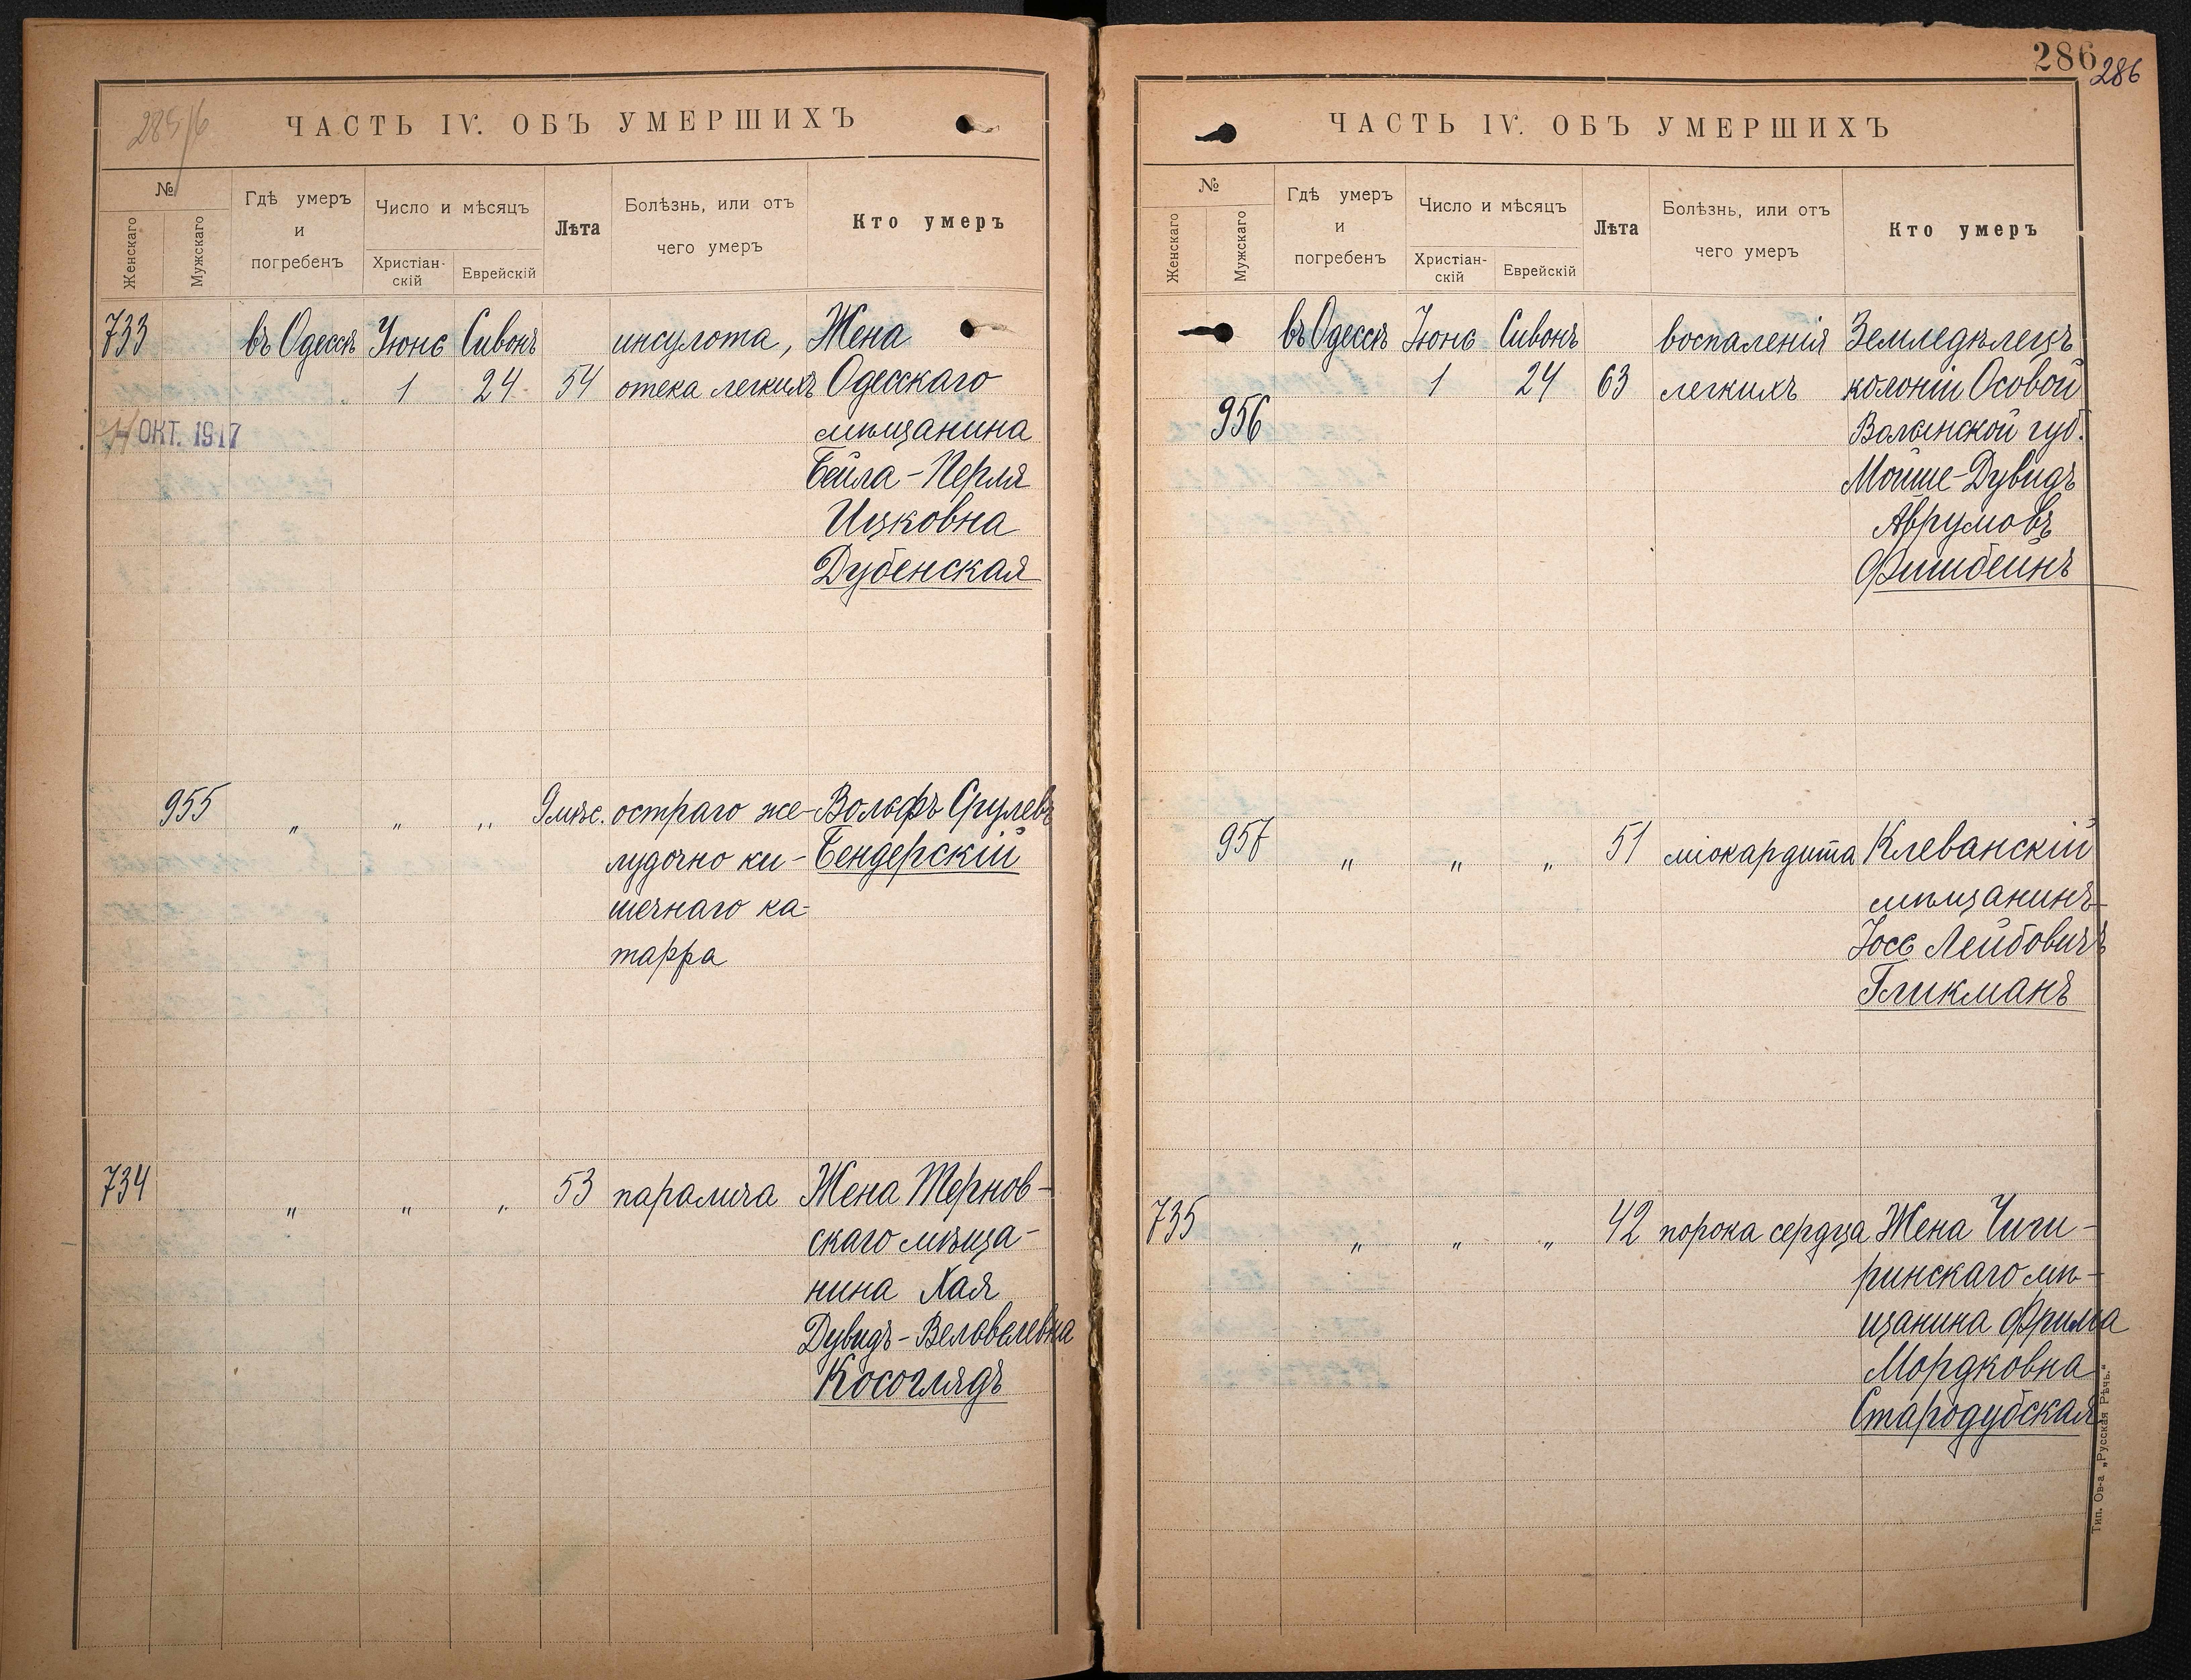 285/6
ЧАСТЬ IV. ОБЪ УМЕРШИХЪ
№
Женскаго
Мужскаго
Гдѣ умеръ
и
погребенъ
Число и мѣсяцъ
Христіан-
скій
Еврейскій
Лѣта
Болѣзнь, или отъ
чего умеръ
Кто умеръ
733 въ Одессѣ Іюнь Сивонъ инсульта, Жена
1 24 54 отека легкихъ Одесскаго
ОКТ. 1917 мѣщанина
Бейла-Перля
Ицковна
Дубенская
955 " " " 9 мѣс. остраго же- Вольфъ Срулевъ
лудочно ки- Бендерскій
шечнаго ка-
тарра
734 " " " 53 паралича Жена Тернов-
скаго мѣща-
нина Хая
Дувидъ-Велвелевна
Косоглядъ
286
286
ЧАСТЬ IV. ОБЪ УМЕРШИХЪ
№
Женскаго
Мужскаго
Гдѣ умеръ
и
погребенъ
Число и мѣсяцъ
Христіан-
скій
Еврейскій
Лѣта
Болѣзнь, или отъ
чего умеръ
Кто умеръ
въ Одессѣ Іюнь Сивонъ воспаленія Земледѣлецъ
1 24 63 легкихъ колоніи Осовой
956 Волынской губ.
Мойше-Дувидъ
Аврумовъ
Фишбейнъ
957 " " " 51 міокардита Клеванскій
мѣщанинъ
Іось Лейбовичъ
Гликманъ
735 " " " 42 порока сердца Жена Чиги-
ринскаго мѣ-
щанина Фрима
Мордковна
Стародубская
Тип. Ов-а „Русская Рѣчь.“